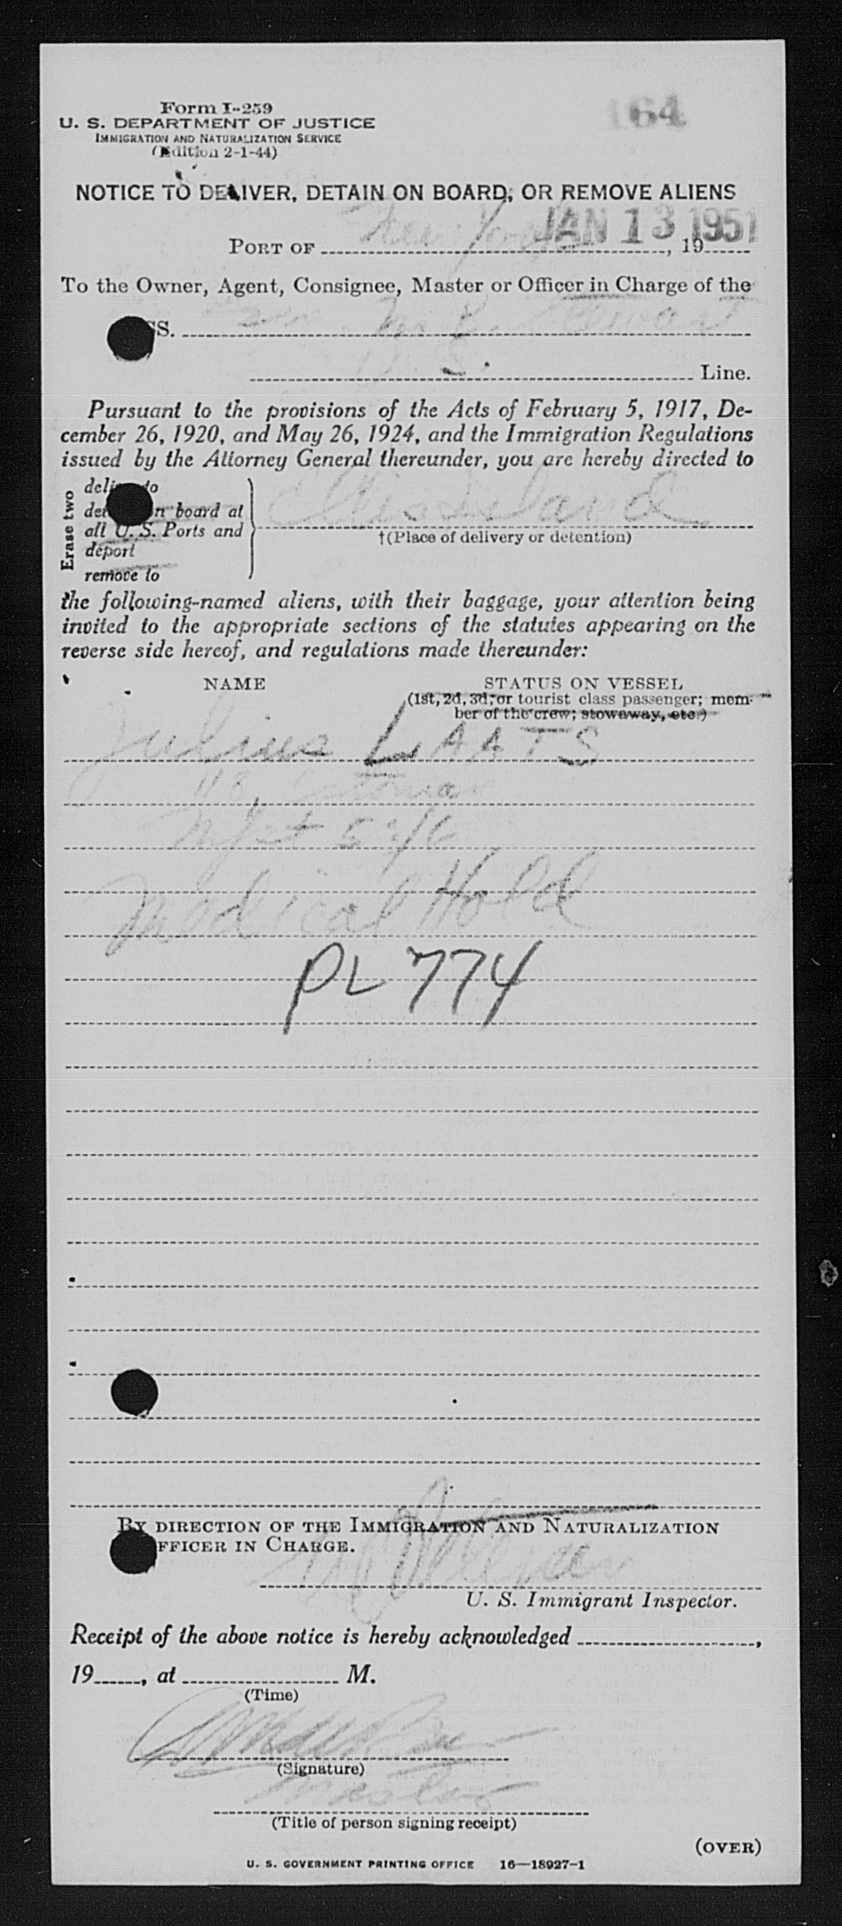 Form I-259
U. S. DEPARTMENT OF JUSTICE
IMMIGRATION AND NATURALIZATION SERVICE
(Edition 2-1-44)
164
NOTICE TO DELIVER, DETAIN ON BOARD, OR REMOVE ALIENS
PORT OF New York JAN 13 1951, 19
To the Owner, Agent, Consignee, Master or Officer in Charge of the
SS.
Line.
Pursuant to the provisions of the Acts of February 5, 1917, De-
cember 26, 1920, and May 26, 1924, and the Immigration Regulations
issued by the Attorney General thereunder, you are hereby directed to
Erase two
to
board at
all U. S. Ports and
deport
remove to
Ellis Island
†(Place of delivery or detention)
the following-named aliens, with their baggage, your attention being
invited to the appropriate sections of the statutes appearing on the
reverse side hereof, and regulations made thereunder:
NAME STATUS ON VESSEL
(1st, 2d, 3d, or tourist class passenger; mem-
ber of the crew; stowaway, etc.)
Julius LAATS
Medical Hold
PL 774
BY DIRECTION OF THE IMMIGRATION AND NATURALIZATION
OFFICER IN CHARGE.
U. S. Immigrant Inspector.
Receipt of the above notice is hereby acknowledged ,
19 , at M.
(Time)
(Signature)
(Title of person signing receipt)
(OVER)
U. S. GOVERNMENT PRINTING OFFICE 16—18927-1